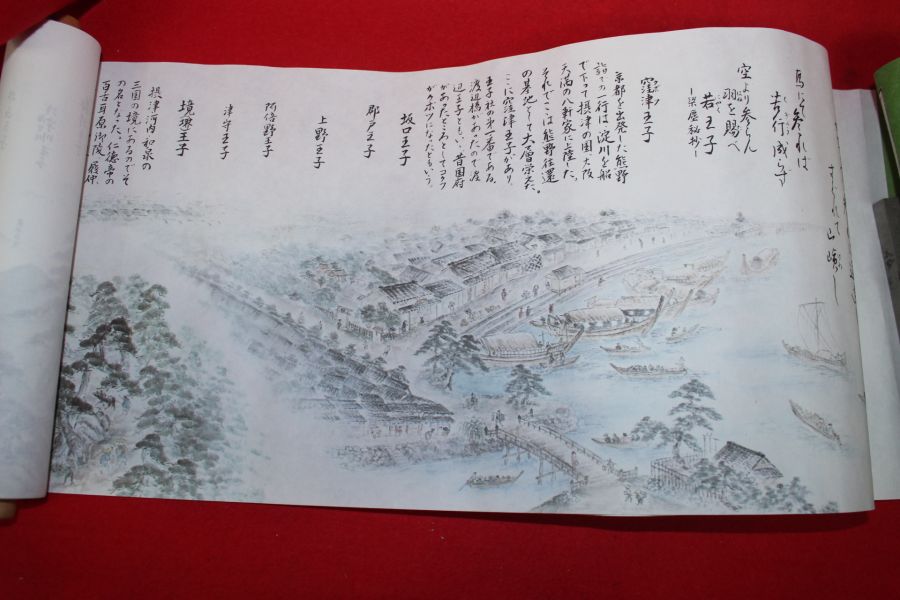 すぐれて山峻し
馬に参れは
苦行成らす
空より参らん
羽を賜べ
若王子
―梁塵秘抄―
窪津王子
京都を出発した熊野
詣での一行は淀川を船
で下って摂津の国大阪
天満の八軒家に上陸した。
それでここは熊野往還
の基地として大層栄えた。
ここに窪津王子があり、
王子社の第一番である。
渡辺橋があったので渡
辺王子ともいい、昔国府
があったところとしてコクフ
がクボツになったともいう。
坂口王子
郡戸王子
上野王子
阿倍野王子
津守王子
境王子
摂津 河内 和泉の
三国の境にあるのでそ
の名となった。仁徳帝の
百舌耳原御陵 履仲